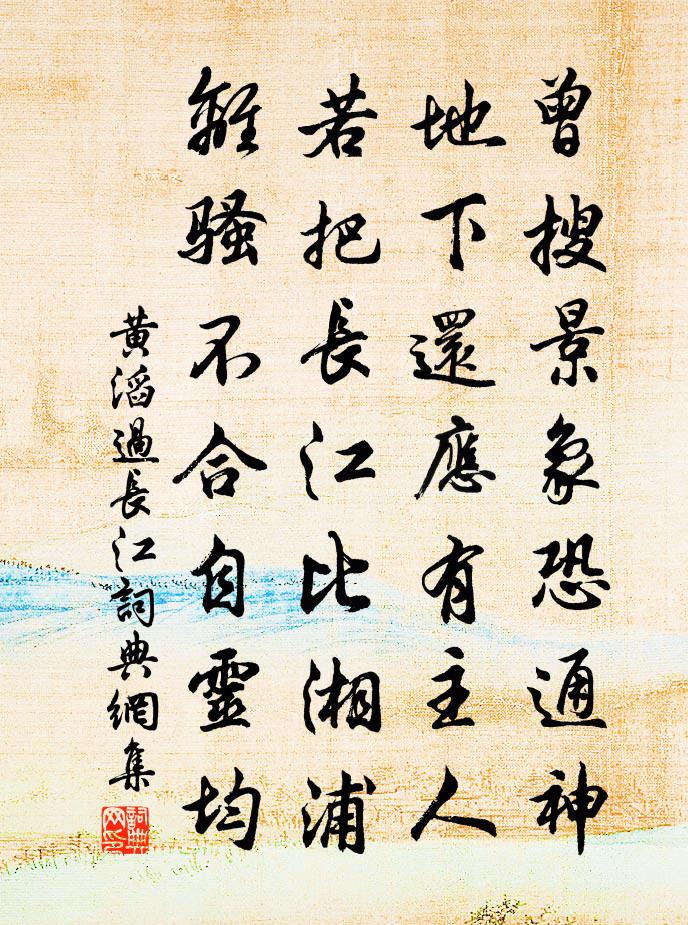 曾搜景象恐通神
地下還應有主人
若把長江比湘浦
離騷不合自靈均
黃滔過長江詞典網集
詞典網印